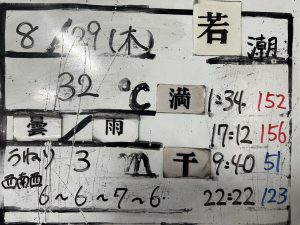 8/29(木) 若潮
32℃ 満 1:34 152
曇/雨 17:12 156
うねり 3m 干 9:40 51
西南西 22:22 123
6~6~7~6